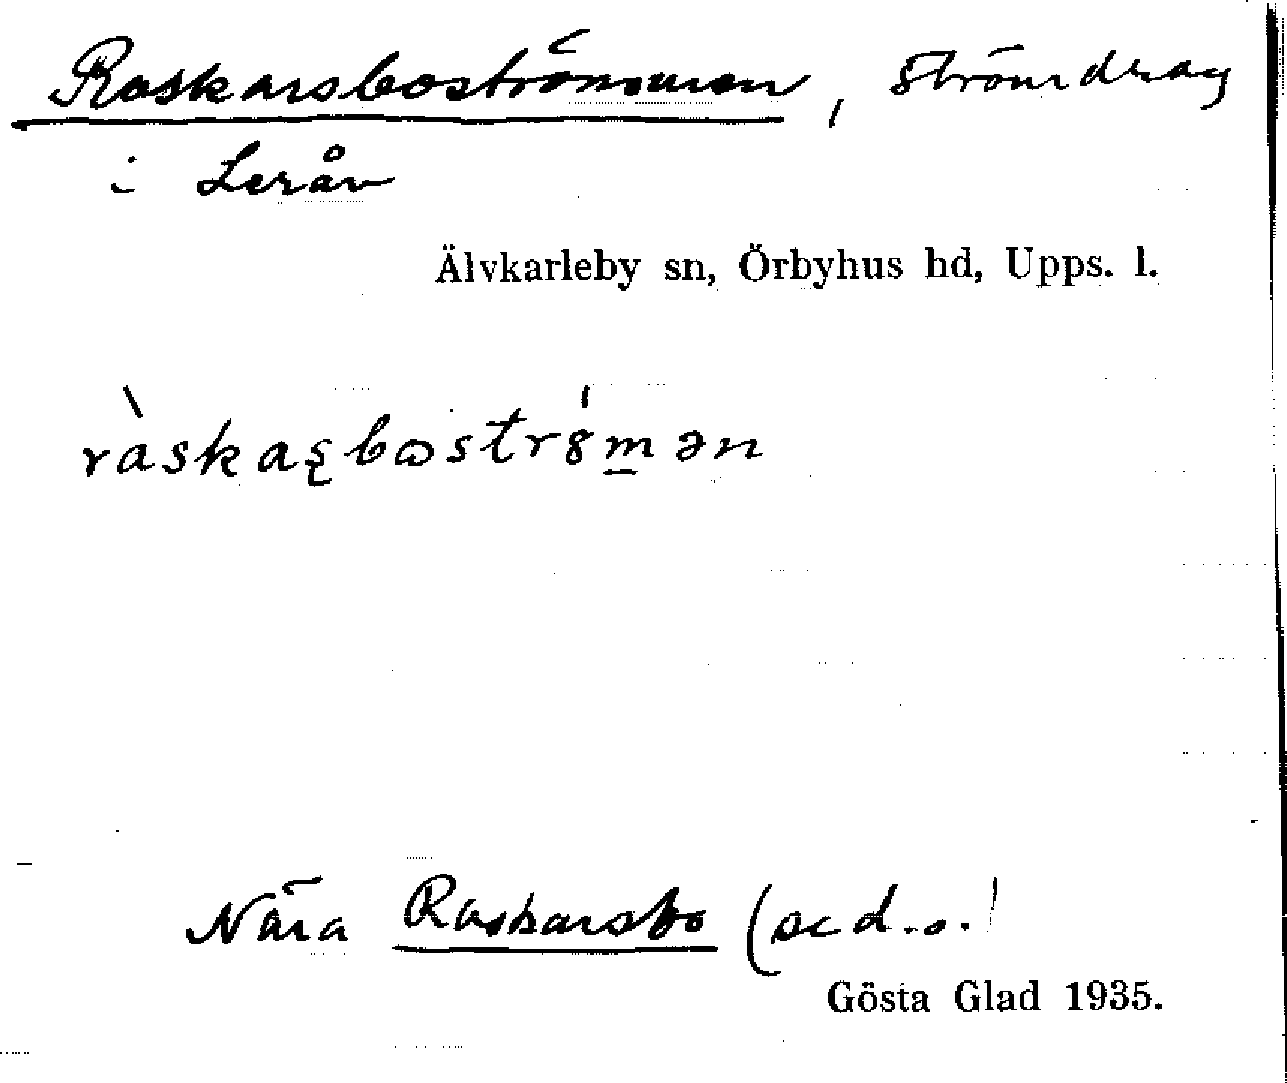 Raskarsboströmmen, strömdrag
i Leråv
Älvkarleby sn, Örbyhus hd, Upps. l.
Nära Raskarsbo (se d.o.)
Gösta Glad 1935.